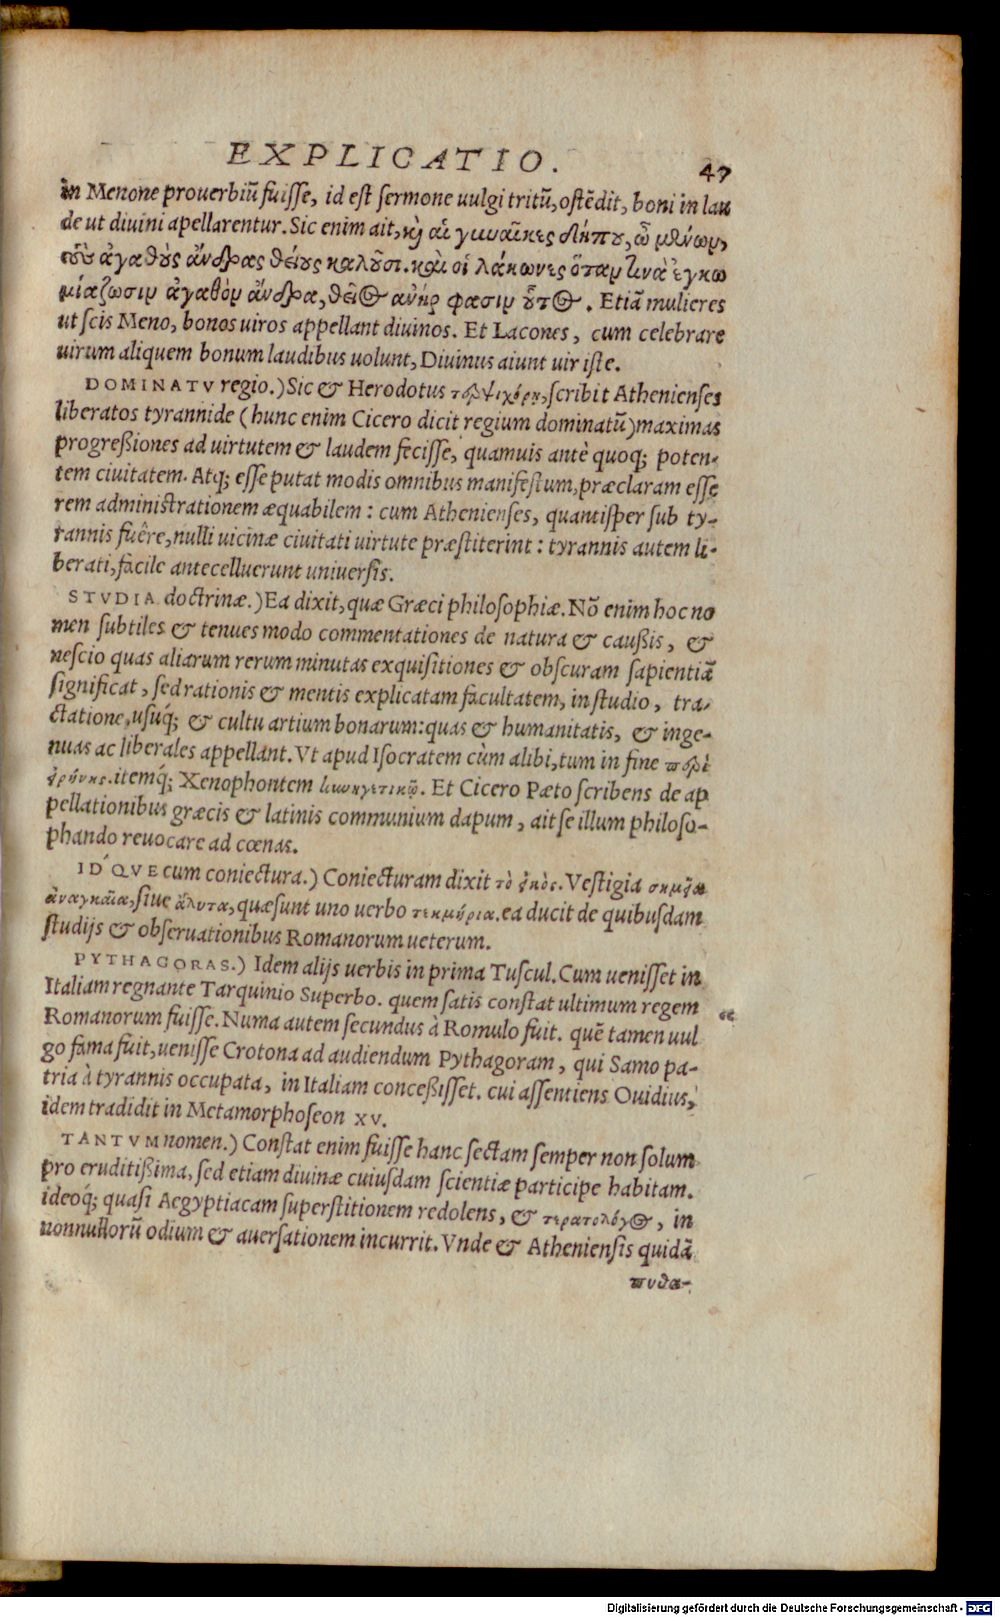 EXPLICATIO. 47
in Menone prouerbiũ fuisse, id est sermone uulgi tritũ, ostẽdit, boni in lau
de ut diuini apellarentur. Sic enim ait, καὶ αἱ γυναῖκες δήπου, ὦ μένων,
τοὺς ἀγαθοὺς ἄνδρας θείους καλοῦσι. καὶ οἱ λάκωνες ὅταν τινὰ ἐγκω
μιάζωσιν ἀγαθὸν ἄνδρα, θεῖος ἀνήρ φασιν οὗτος. Etiã mulieres
ut scis Meno, bonos uiros appellant diuinos. Et Lacones, cum celebrare
uirum aliquem bonum laudibus uolunt, Diuinus aiunt uir iste.
DOMINATV regio.) Sic & Herodotus τερψιχόρῃ, scribit Athenienses
liberatos tyrannide (hunc enim Cicero dicit regium dominatũ) maximas
progreßiones ad uirtutem & laudem fecisse, quamuis antè quoq; poten-
tem ciuitatem. Atq; esse putat modis omnibus manifestum, præclaram esse
rem administrationem æquabilem: cum Athenienses, quantisper sub ty-
rannis fuêre, nulli uicinæ ciuitati uirtute præstiterint: tyrannis autem li-
berati, facile antecelluerunt uniuersis.
STVDIA doctrinæ.) Ea dixit, quæ Græci philosophiæ. Nõ enim hoc no
men subtiles & tenues modo commentationes de natura & caußis, &
nescio quas aliarum rerum minutas exquisitiones & obscuram sapientiã
significat, sed rationis & mentis explicatam facultatem, in studio, tra-
ctatione, usuq́; & cultu artium bonarum: quas & humanitatis, & inge-
nuas ac liberales appellant. Vt apud Isocratem cùm alibi, tum in fine περὶ
εἰρήνης. itemq́; Xenophontem κυνηγετικῷ. Et Cicero Pæto scribens de ap
pellationibus græcis & latinis communium dapum, ait se illum philoso-
phando reuocare ad cœnas.
ID´QVE cum coniectura.) Coniecturam dixit τὸ εἰκὸς. Vestigia σημεῖα
ἀναγκαῖα, siue ἄλυτα, quæ sunt uno uerbo τεκμήρια. ea ducit de quibusdam
studijs & obseruationibus Romanorum ueterum.
PYTHAGORAS.) Idem alijs uerbis in prima Tuscul. Cum uenisset in
Italiam regnante Tarquinio Superbo. quem satis constat ultimum regem
Romanorum fuisse. Numa autem secundus à Romulo fuit. quẽ tamen uul
go fama fuit, uenisse Crotona ad audiendum Pythagoram, qui Samo pa-
tria à tyrannis occupata, in Italiam conceßisset. cui assentiens Ouidius,
idem tradidit in Metamorphoseon XV.
TANTVM nomen.) Constat enim fuisse hanc sectam semper non solum
pro eruditißima, sed etiam diuinæ cuiusdam scientiæ participe habitam.
ideoq́; quasi Aegyptiacam superstitionem redolens, & τερατολόγος, in
nonnullorũ odium & auersationem incurrit. Vnde & Atheniensis quidã
πυθα-
Digitalisierung gefördert durch die Deutsche Forschungsgemeinschaft - DFG